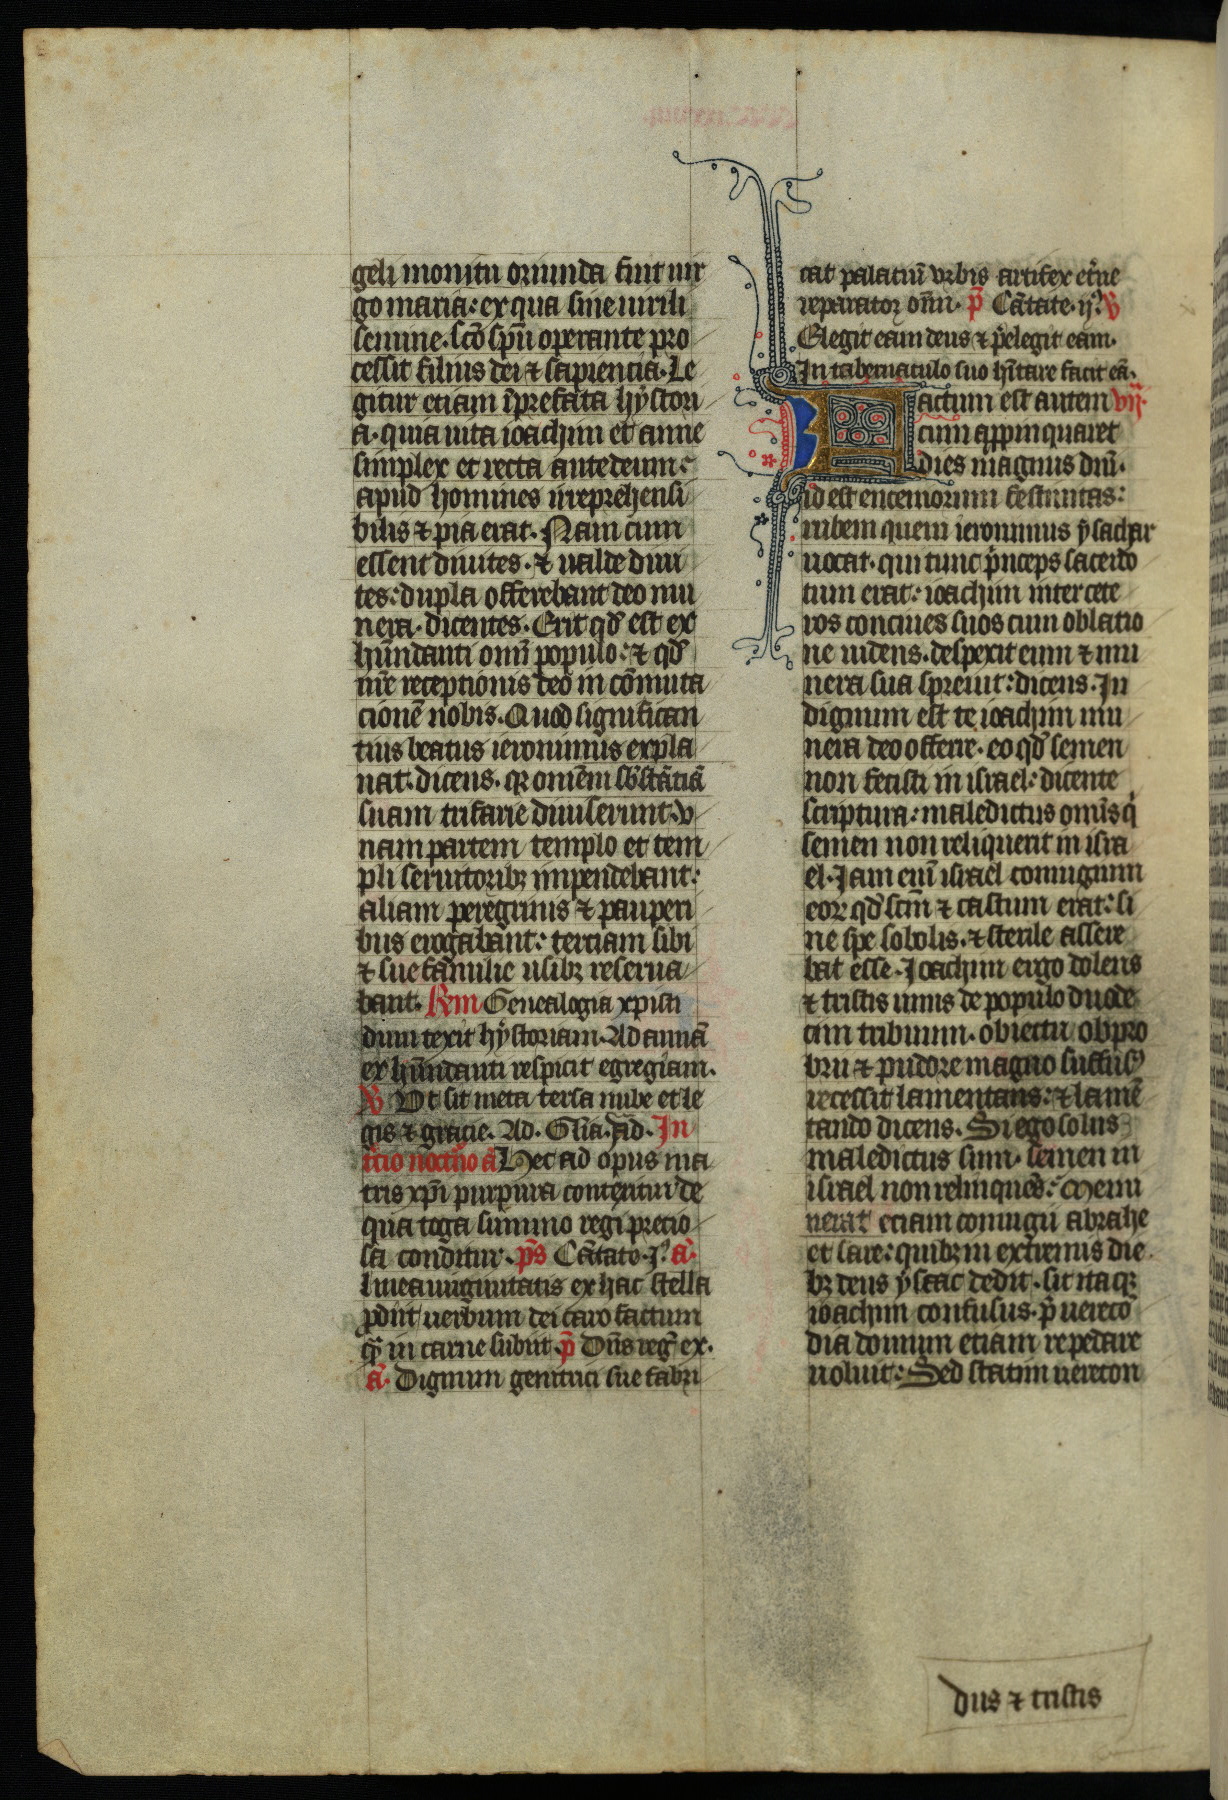 geli monitu oriunda fuit uir
go maria: ex qua sine uirili
semine. sc̄o sp̄u operante pro
cessit filius dei ⁊ sapiencia. Le
gitur etiam ī prefata hẏstori
a. quia uita ioachim et anne
simplex et recta ante deum:
apud homines irreprehensi
bilis ⁊ pia erat. Nam cum
essent diuites. ⁊ ualde diui
tes: dupla offerebant deo mu
nera. dicentes. Erit qd̄ est ex
hūndanti omī populo: ⁊ qd̄
mē receptionis deo in cōmuta
cionē nobis. Quod significan
tius beatus ieronimus expla
nat. dicens. qꝛ omēm sb̄stātiā
suam trifarie diuiserunt. v
nam partem templo et tem
pli seruitoribꝫ impendebant:
aliam peregrinis ⁊ pauperi
bus erogabant: terciam sibi
⁊ sue familie usibꝫ reserua
bant. Rm̄ Genealogia xpisti
dum texit hẏstoriam. Ad annā
ex hūndanti respicit egregiam.
V̄ Ut sit meta tersa nube et le
gis ⁊ gracie. Ad. Glia. Ad. In
t̄cio noct̄no ā Hec ad opus ma
tris xp̄i purpura contexitur de
qua toga summo regi precio
sa conditur. p̄s Cātate. j.º ā.
linea uirginitatis ex hac stella
ꝓdiit uerbum dei caro factum
q̄ in carne subiit. p̄ Dn̄s reḡ ex.
ā. Dignum genitrici sue fabri
cat palatiū vrbis artifex et̄ne
reparator om̄. p̄ Cātate. ij.º V̄
Elegit eam deus ⁊ p̄elegit eam.
In tabernaculo suo hītare facit eā.
Factum est autem vij.
cum appropinquaret
dies magnus dn̄i.
id est enceniorum festiuitas:
rubem quem ieronimus ẏsachar
uocat. qui tunc p̄nceps sacerdo
tum erat: ioachim inter cete
ros conciues suos cum oblatio
ne uidens. despexit eum ⁊ mu
nera sua spreuit: dicens. In
dignum est te ioachim mu
nera deo offerre. eo qd̄ semen
non fecisti in israel: dicente
scriptura: maledictus omīs q̄
semen non reliquerit in isra
el. Iam enī israel coniugium
eoꝝ qd̄ sc̄m ⁊ castum erat: si
ne spe sobolis. ⁊ sterile assere
bat esse. Ioachim ergo dolens
⁊ tristis unus de populo duode
cim tribuum. obiectu obpro
brii ⁊ pudore magno suffusꝰ
recessit lamentans: ⁊ lamē
tando dicens. Si ego solus
maledictus sum. semen in
israel non relinquēs: Memi
nerat etiam coniugii abrahe
et sare: quibꝫ in extremis die
bꝫ deus ẏsaac dedit. sit itaqꝫ
ioachim confusus. p̄ uerecō
dia domum etiam repedare
noluit: Sed statim uerecon
dus ⁊ tristis